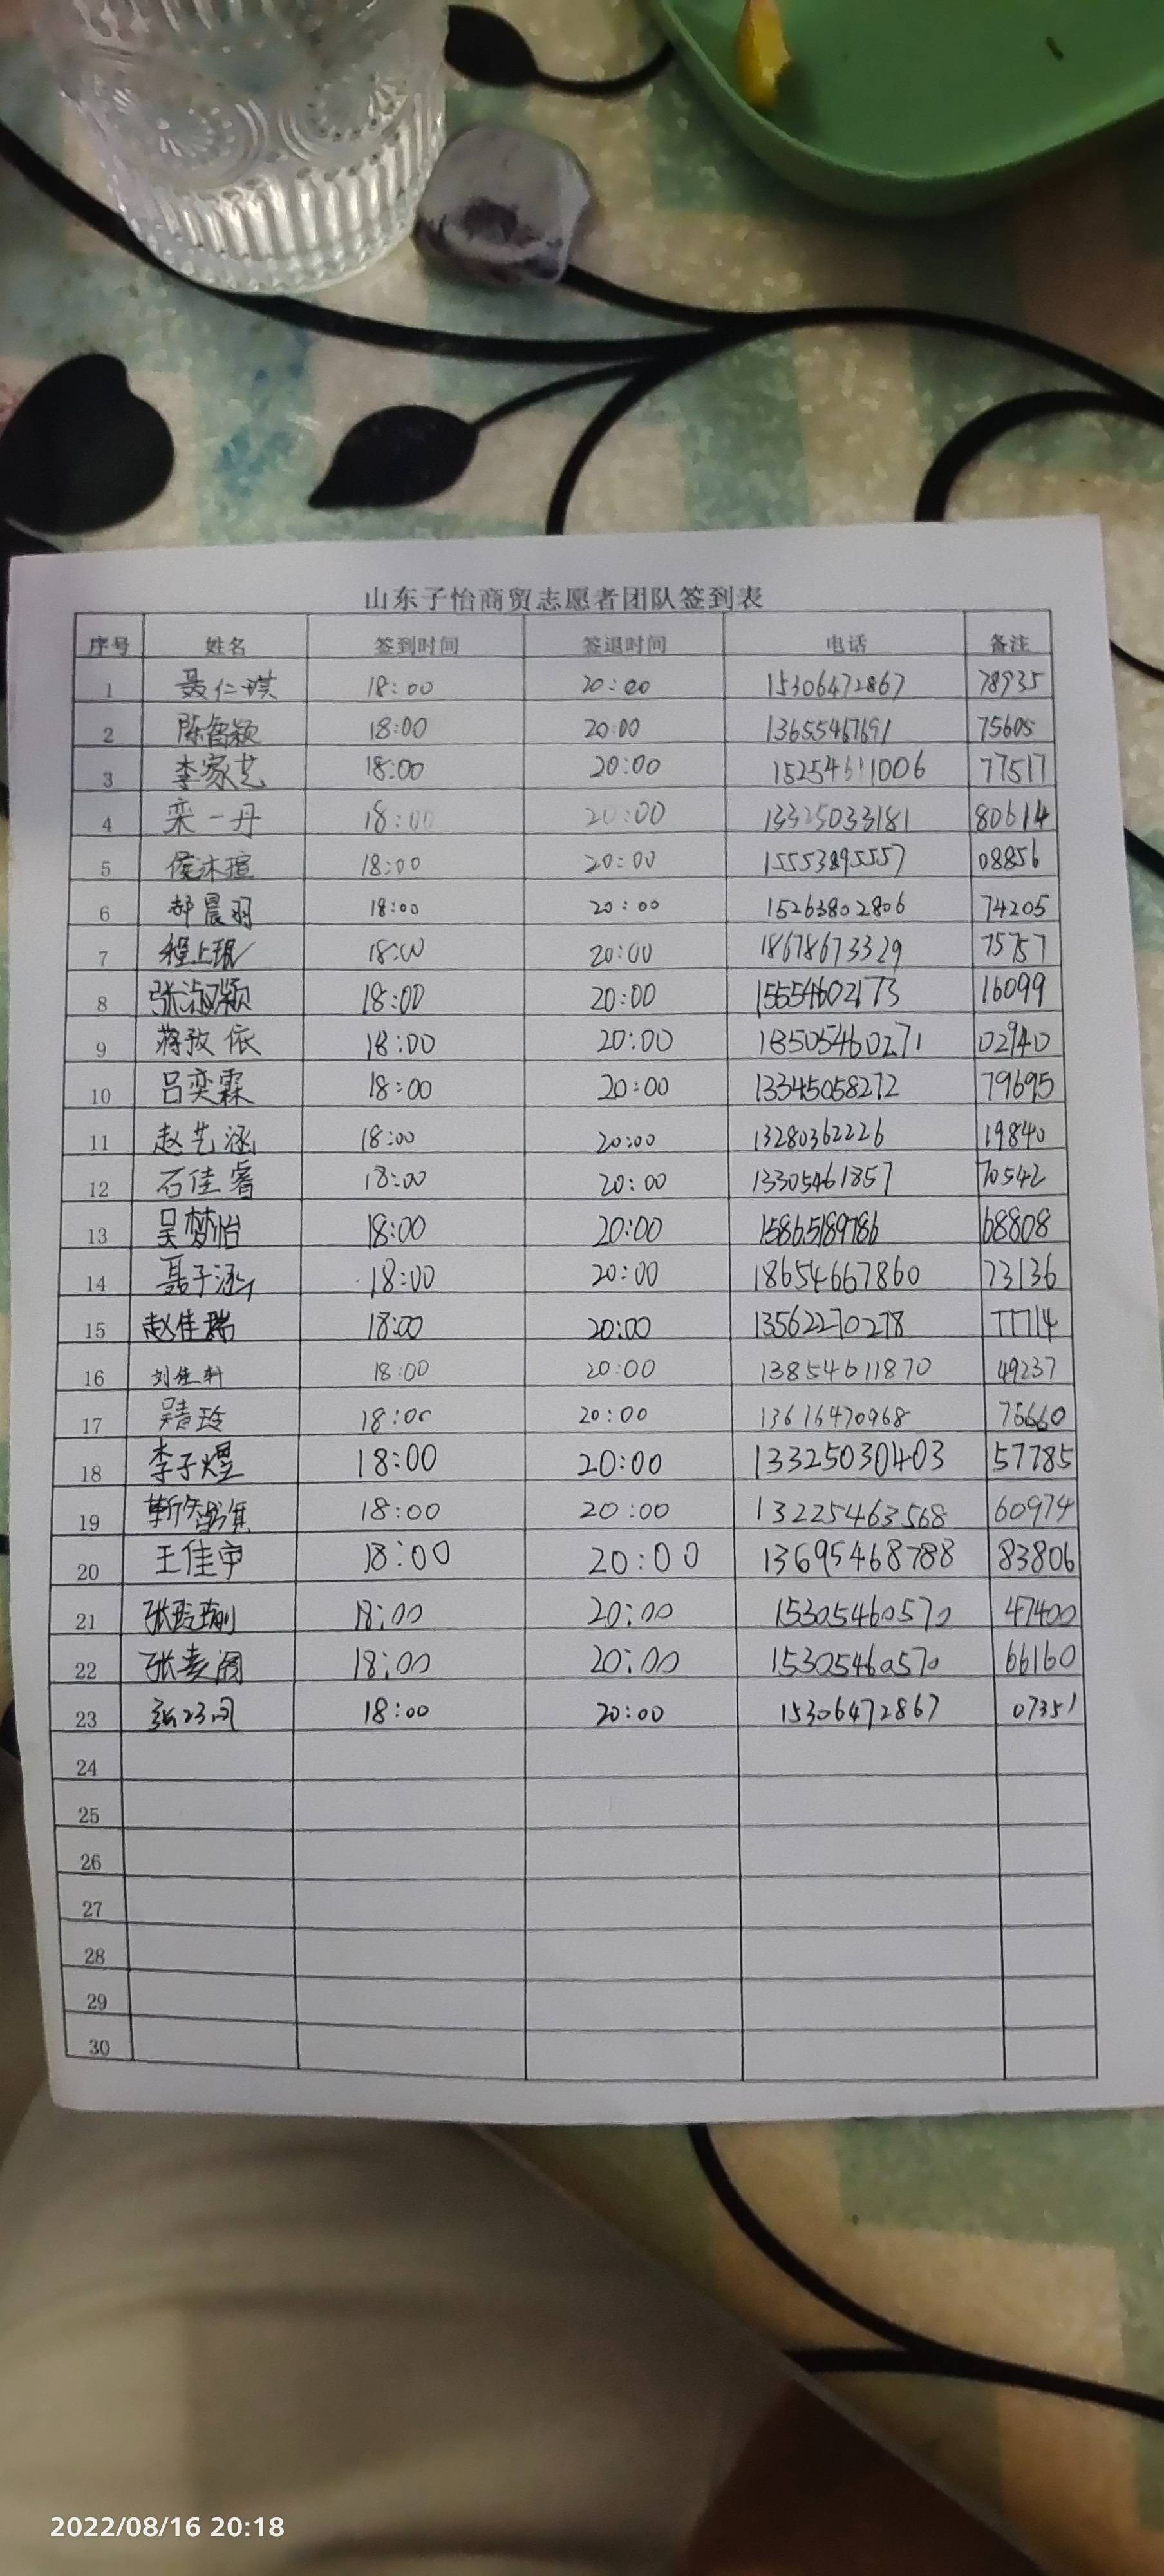 山东子怡商贸志愿者团队签到表
序号 姓名 签到时间 签退时间 电话 备注
1 聂仁琪 18:00 20:00 15306472867 78935
2 陈智颖 18:00 20:00 13655467691 75605
3 李家艺 18:00 20:00 15254611006 77517
4 栾一丹 18:00 20:00 13325033181 80614
5 侯沐瑄 18:00 20:00 15553895557 08856
6 郝晨羽 18:00 20:00 15263802806 74205
7 程上珉 18:00 20:00 18678673329 75757
8 张淑颖 18:00 20:00 15554602173 16099
9 蒋孜依 18:00 20:00 13505460271 02940
10 吕奕霖 18:00 20:00 13345058272 79695
11 赵艺涵 18:00 20:00 13280362226 19840
12 石佳睿 18:00 20:00 13305461857 70542
13 吴梦怡 18:00 20:00 15865189786 68808
14 聂子涵 18:00 20:00 18654667860 73136
15 赵佳瑞 18:00 20:00 13562270278 77714
16 刘佳轩 18:00 20:00 13854611870 49237
17 吴玲 18:00 20:00 13616470968 76660
18 李子煜 18:00 20:00 13325030403 57785
19 靳 18:00 20:00 13225463568 60974
20 王佳宁 18:00 20:00 13695468788 83806
21 张 18:00 20:00 15305460570 47400
22 张 18:00 20:00 15305460570 66160
23 18:00 20:00 15306472867 07351
24
25
26
27
28
29
30
2022/08/16 20:18